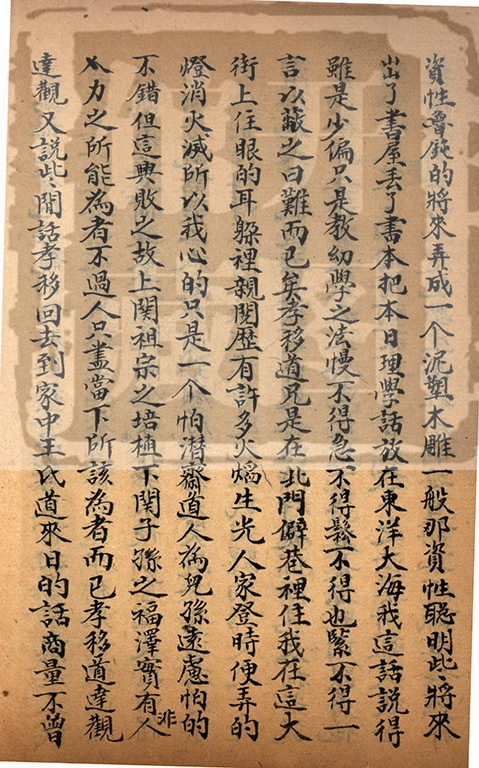 資性魯鈍的將來弄成一个泥塑木雕一般那資性聰明些將來
出了書屋丢了書本把本日理學話放在東洋大海我這話說得
雖是少偏只是教幼學之法慢不得急不得鬆不得也緊不得一
言以蔽之曰難而已矣孝移道兄是在北門僻巷裡住我在這大
街上住眼的耳躲裡親閱歷有許多火焰生光人家登時便弄的
燈消火滅所以我心的只是一个怕潜齋道人為兒孫遠慮怕的
不錯但這興敗之故上関祖宗之培植下関子孫之福澤實有人非
人力之所能為者不過人只盡當下所該為者而已孝移道達觀
達觀又說些閒話孝移回去到家中王氏道來日的話商量不曾